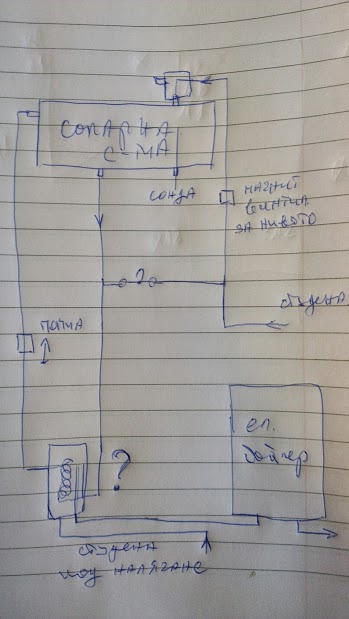 СОЛАРНА
С-МА
СОНДА
МАГНИТ
ВЕНТИЛ
ЗА НИВОТО
?
СТУДЕНА
ПОМПА
ел.
бойлер
?
СТУДЕНА
ПОД НАЛЯГАНЕ